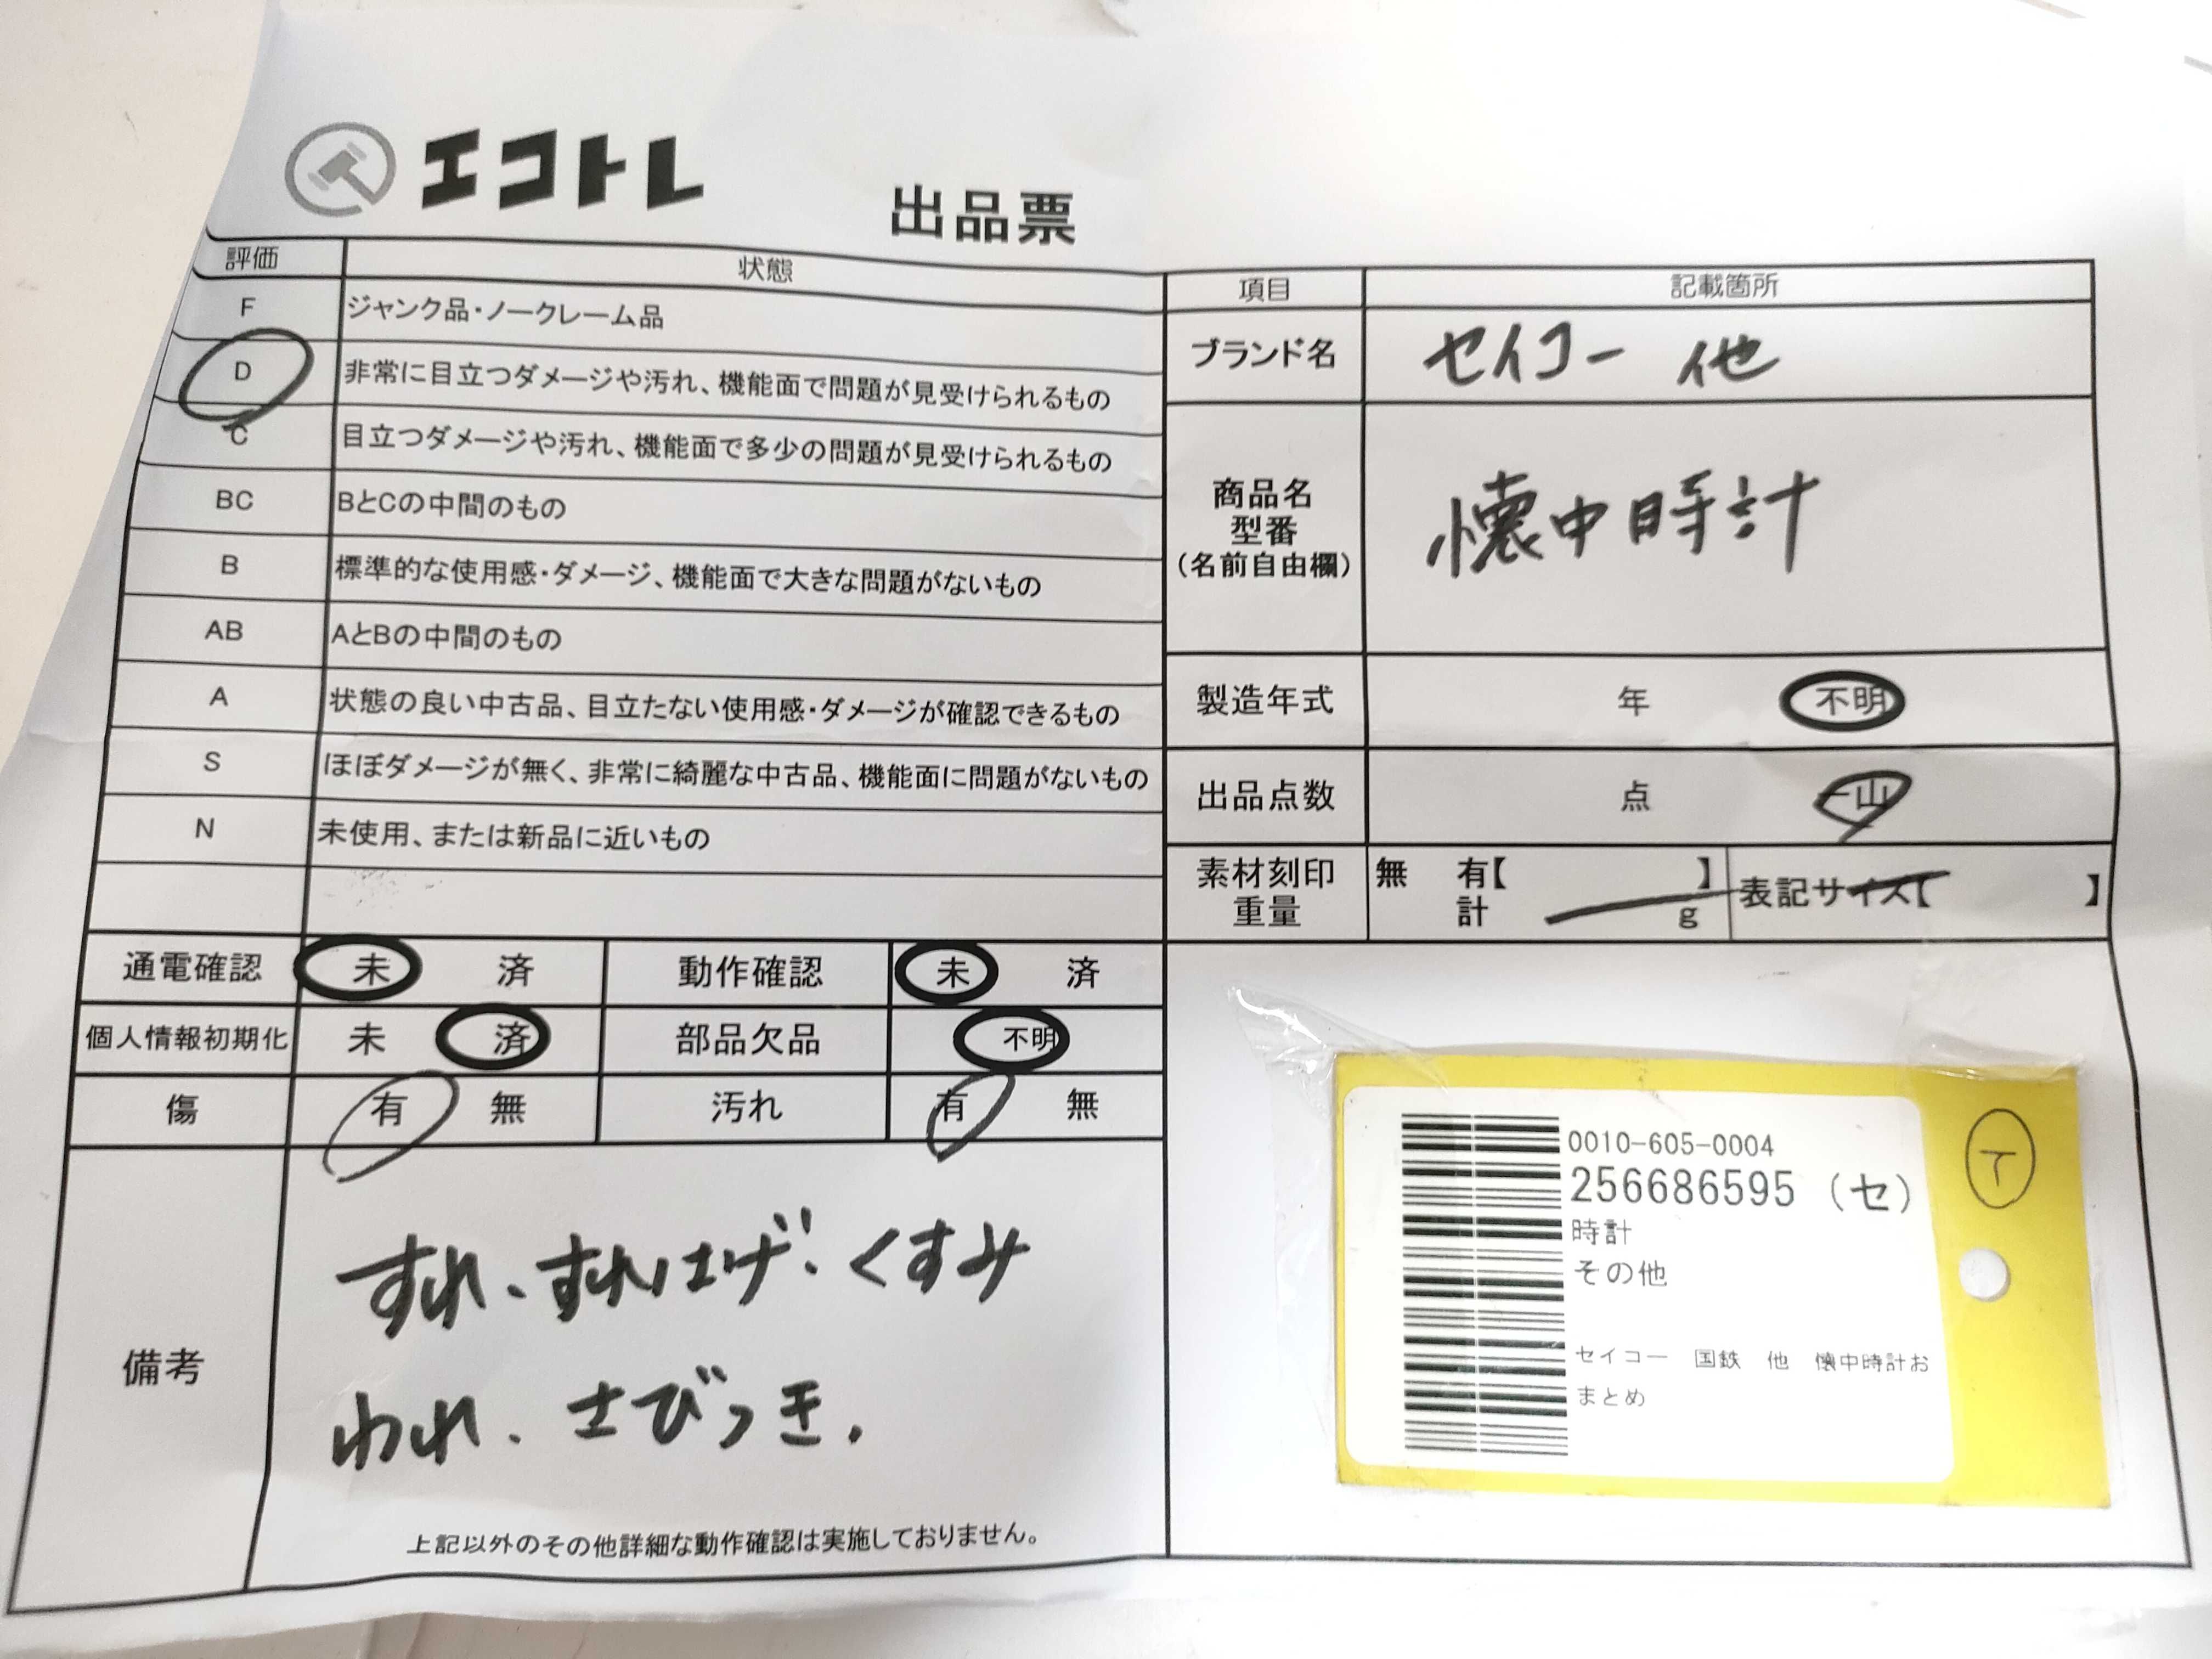 エコトレ
出品票
評価 状態
F ジャンク品・ノークレーム品
D 非常に目立つダメージや汚れ、機能面で問題が見受けられるもの
C 目立つダメージや汚れ、機能面で多少の問題が見受けられるもの
BC BとCの中間のもの
B 標準的な使用感・ダメージ、機能面で大きな問題がないもの
AB AとBの中間のもの
A 状態の良い中古品、目立たない使用感・ダメージが確認できるもの
S ほぼダメージが無く、非常に綺麗な中古品、機能面に問題がないもの
N 未使用、または新品に近いもの
通電確認 未 済 動作確認 未 済
個人情報初期化 未 済 部品欠品 不明
傷 有 無 汚れ 有 無
備考
すれ、すれはげ、くすみ
われ、さびつき.
上記以外のその他詳細な動作確認は実施しておりません。
項目 記載箇所
ブランド名 セイコー 他
商品名
型番
(名前自由欄)
懐中時計
製造年式 年 不明
出品点数 点 一山
素材刻印 無 有【 】
重量 計 g
表記サイズ【 】
0010-605-0004
256686595 (セ)
時計
その他
セイコー 国鉄 他 懐中時計お
まとめ